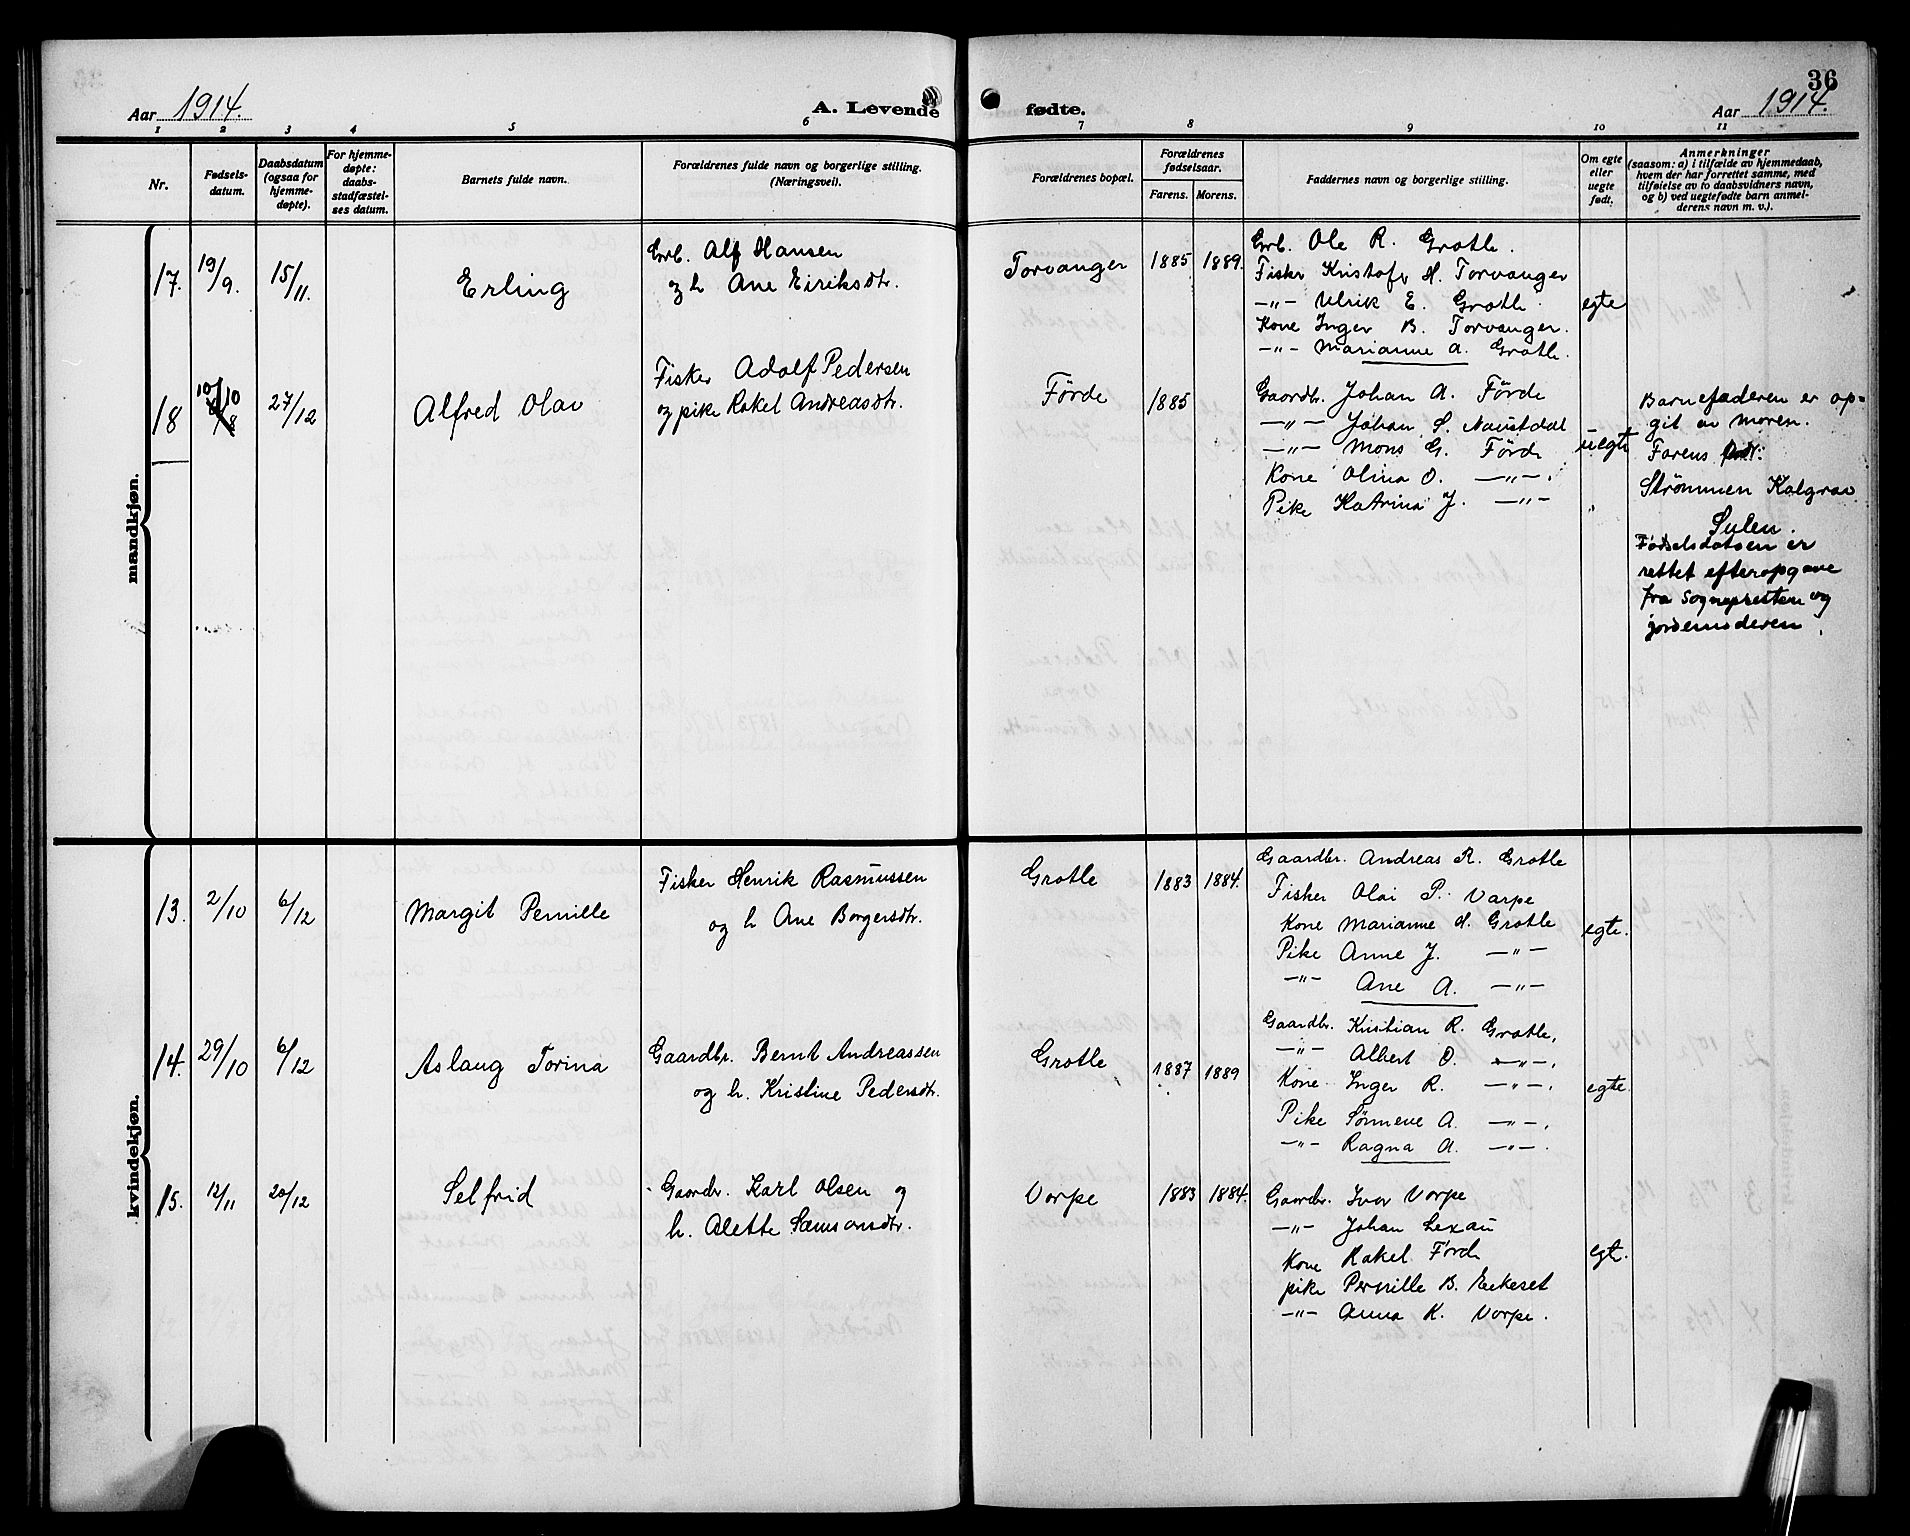 36
Aar 1914.
A. Levende fødte.
Aar 1914.
1 2 3 4 5 6 7 8 9 10 11
Nr.
Fødsels-
datum.
Daabsdatum
(ogsaa for
hjemme-
døpte).
For hjemme-
døpte:
daabs-
stadfæstel-
ses datum.
Barnets fulde navn.
Forældrenes fulde navn og borgerlige stilling.
(Næringsvei).
Forældrenes bopæl.
Forældrenes
fødselsaar.
Farens. Morens.
Faddernes navn og borgerlige stilling.
Om egte
eller
uegte
født.
Anmerkninger
(saasom: a) i tilfælde av hjemmedaab,
hvem der har forrettet samme, med
tilføielse av to daabsvidners navn,
og b) ved uegtefødte barn anmel-
derens navn m. v.).
mandkjøn.
17. 19/9. 15/11. Erling
Grb. Alf Hansen
og h Ane Eiriksdtr.
Torvanger 1885 1889.
Grb. Ole R. Grotle.
Fisker Kristofer H. Torvanger
—"— Ulrik E. Grotle.
Kone Inger B. Torvanger.
—"— Marianne A. Grotle.
egte
18 10/10 27/12 Alfred Olav
Fisker Adolf Pedersen
og pike Rakel Andreasdtr.
Førde 1885
Gaardbr. Johan A. Førde
—"— Johan S. Naustdal
—"— Mons G. Førde
Kone Olina O. —"—.
Pike Katrina J. —"—
uegte
Barnefaderen er op-
git av moren.
Farens adr:
Strømmen Kalgrav
Sulen.
Fødselsdatoen er
rettet efter opgave
fra sognepresten og
jordemoderen.
kvindekjøn.
13. 2/10 6/12 Margit Pernille
Fisker Henrik Rasmussen
og h Ane Borgersdtr.
Grotle 1883 1884.
Gaardbr. Andreas R. Grotle
Fisker Olai P. Varpe
Kone Marianne H. Grotle
Pike Anne J. —"—
—"— Ane A. —"—
egte.
14. 29/10 6/12 Aslaug Torina
Gaardbr. Bernt Andreassen
og h. Kristine Pedersdtr.
Grotle 1887 1889
Gaardbr. Kristian R. Grotle,
—"— Albert O. —"—.
Kone Inger R. —"—.
Pike Sønneve A. —"—.
—"— Ragna A. —"—.
egte.
15. 12/11 20/12 Selfrid
Gaardbr. Karl Olsen og
h. Alette Samsonsdtr.
Vorpe 1883 1884.
Gaardbr. Ivar Vorpe
—"— Johan Lexau
Kone Rakel Førde
pike Pernille B. Eikeset
—"— Anna K. Vorpe.
egte.